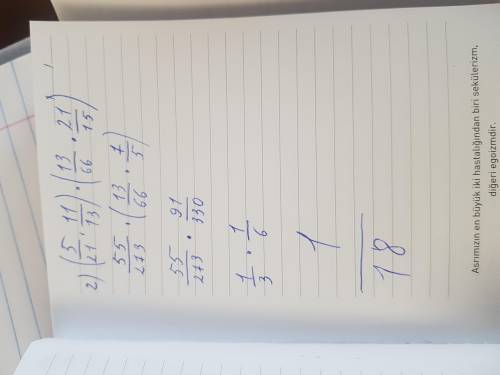 2) (5/21 · 11/13) · (13/66 · 21/15)
55/273 · (13/66 · 7/5)
55/273 · 91/330
1/3 · 1/6
1/18
Asrımızın en büyük iki hastalığından biri sekülerizm,
diğeri egoizmdir.